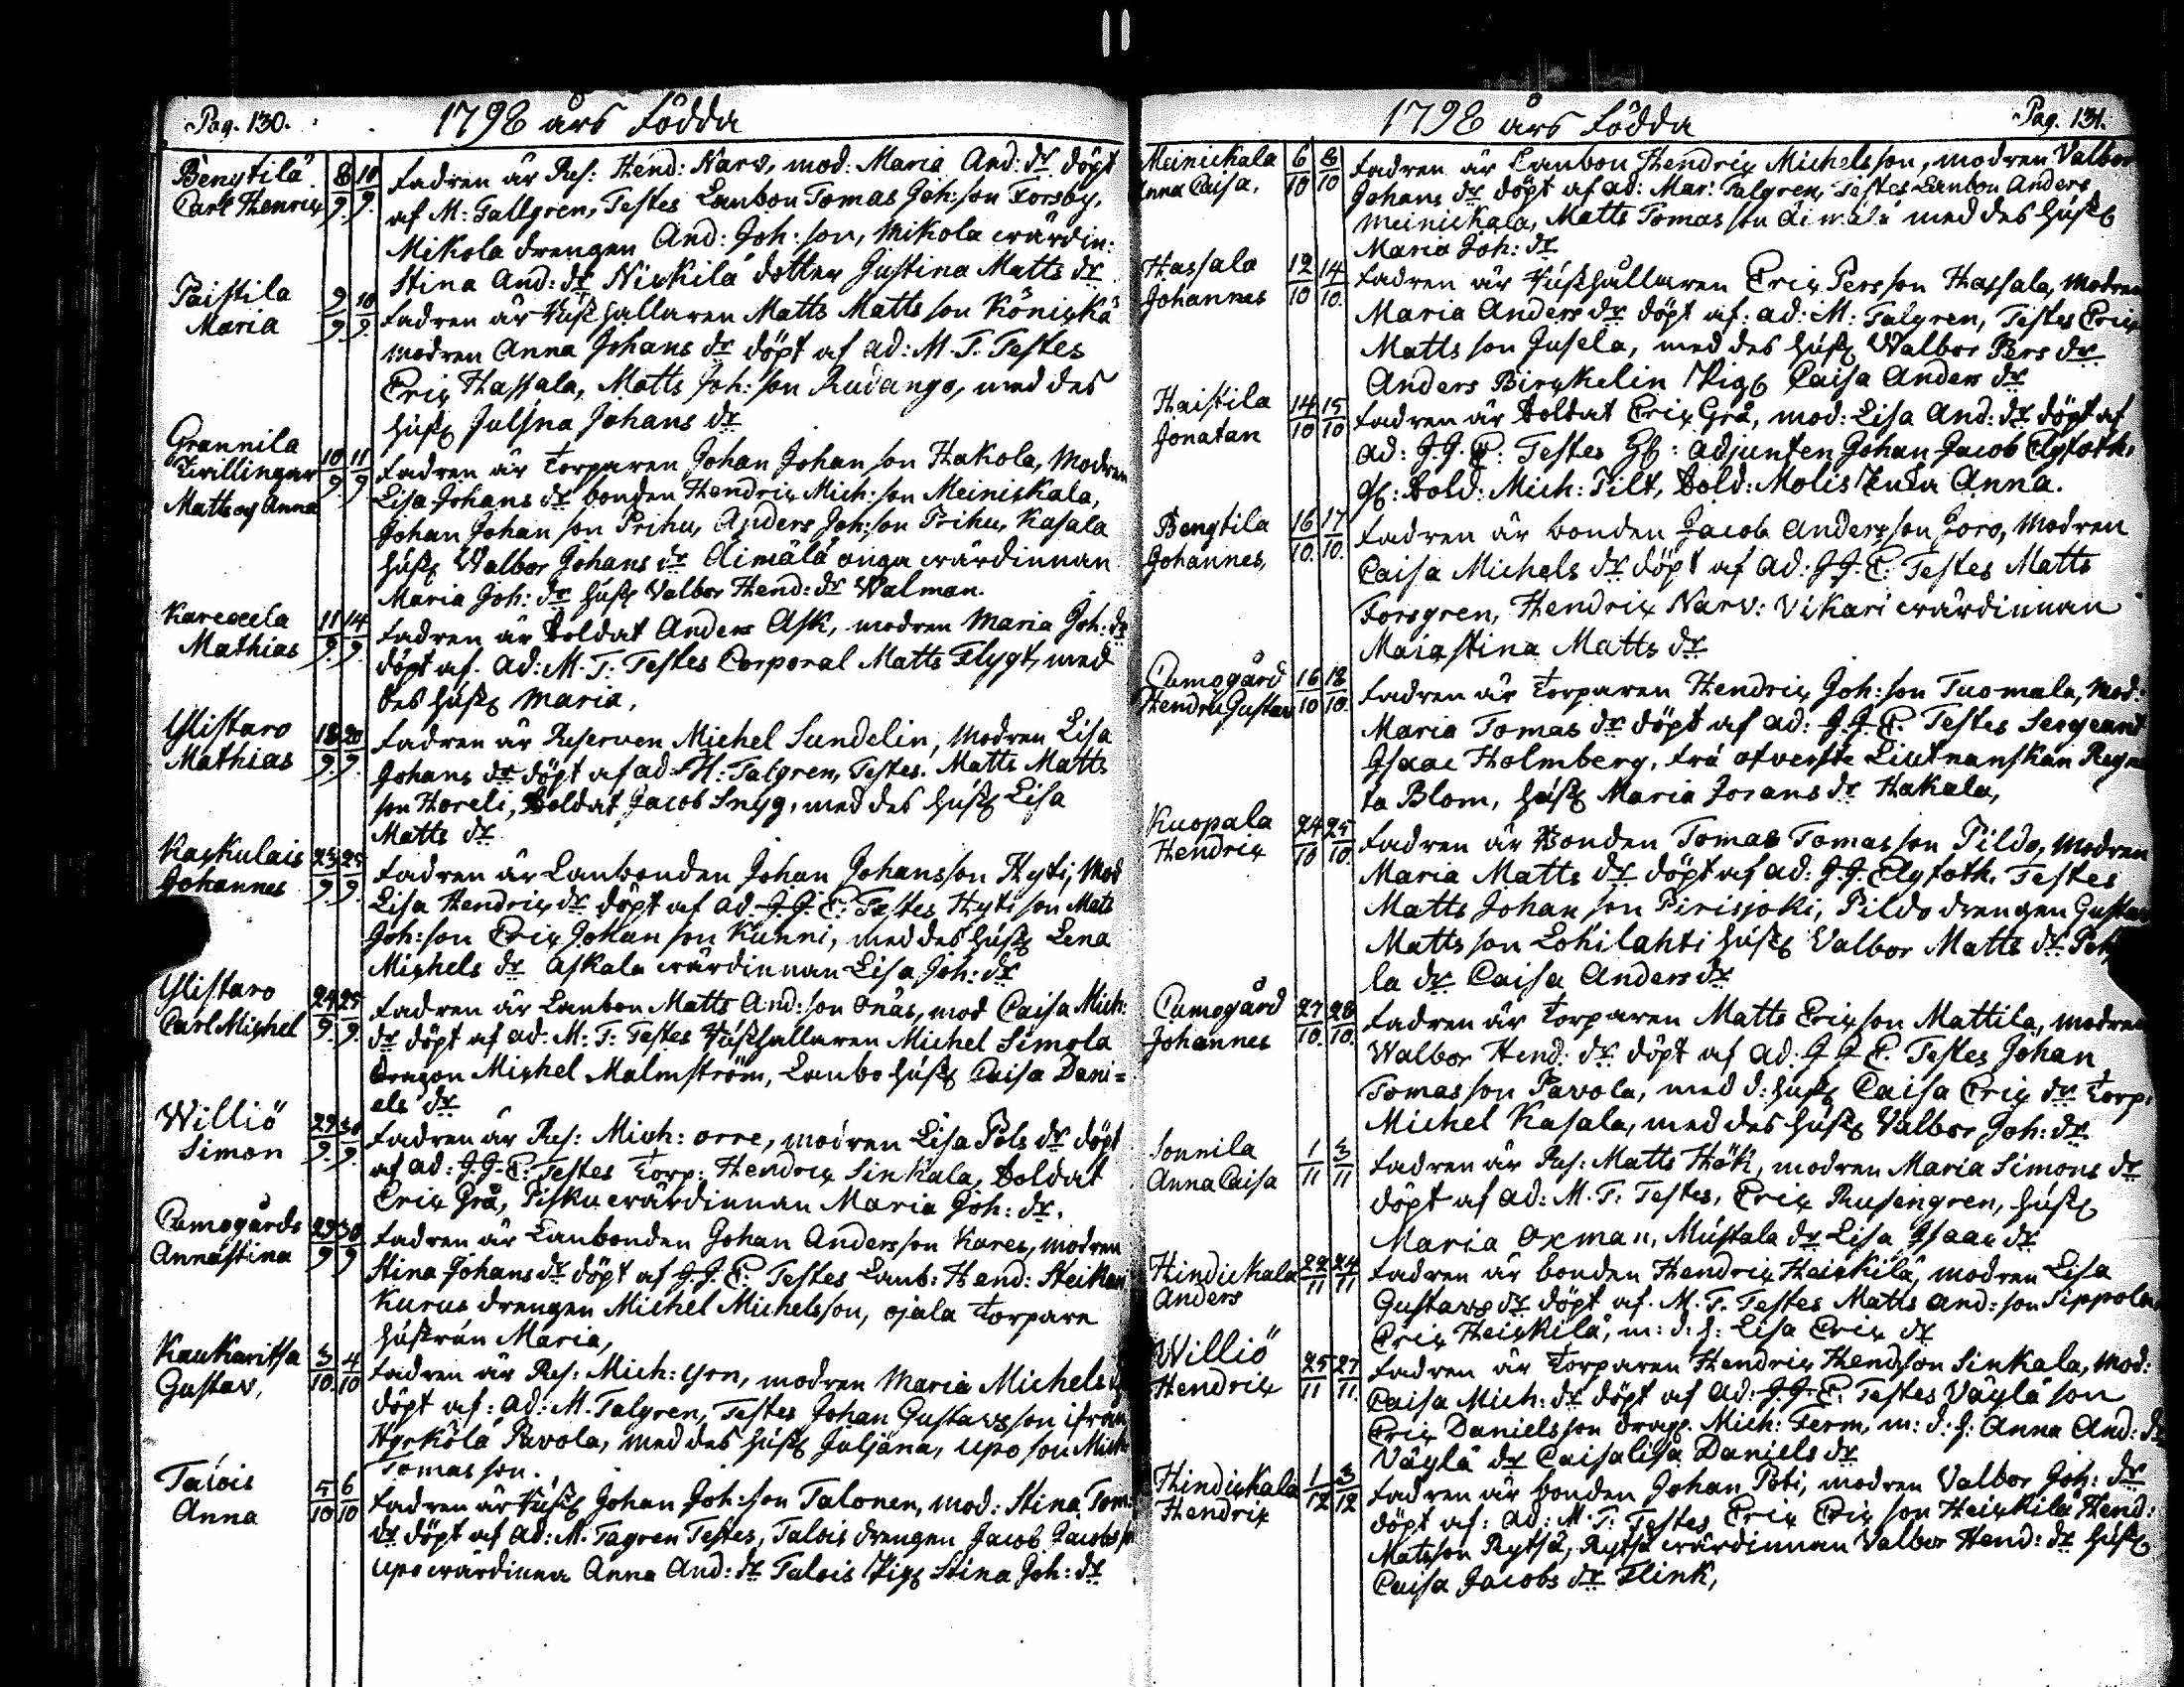 Pag. 130.
1798 års Födda
Bengtilä 8/9. 10/9. Fadren är Res: Hend: Narv, mod: Maria And: dr döpt
Carl Henrix af M: Tallgren, Testes Lanbon Tomas Joh: son Forsby,
Mikola drengen And: Joh: son, Mikola wärdin:
Stina And: dr Niskilä dotter Justina Matts dr
Paistila 9/9. 10/9. Fadren är Hushållaren Matts Matts son Köniskä
Maria modren Anna Johans dr döpt af ad: M. T. Testes
Erix Hassala, Matts Joh: son Rudango, med des
husf Julsna Johans dr
Grannila
Tvillingar 10/9. 11/9 Fadren är Torparen Johan Johan son Hakola, Modren
Matts og Anna Lisa Johans dr bonden Hendrix Mich: son Meiniskala,
Johan Johan son Prihu, Anders Joh: son Prihu, Kasala
husf Walbor Johans dr Äimälä onga wärdinnan
Maria Joh: dr husf Valbor Hend: dr Walman.
Karexela 11/9. 14/9. Fadren är Soldat Anders Ask, modren Maria Joh: dr
Mathias döpt af. ad: M. T: Testes Corporal Matts Flygt, med
des husf Maria,
Ylistaro 18/9. 20/9. Fadren är Reserven Michel Sundelin, Modren Lisa
Mathias Johans dr döpt af ad H: Talgren, Testes. Matts Matts
son Horeli, Soldat Jacob Snyg, med des husf Lisa
Matts dr
Kaskulais 23/9. 25/9. Fadren är Lanbonden Johan Johansson Hyti, Mod
Johannes Lisa Hendrix dr döpt af ad. J. J. E: Testes Hyti son Mats
Joh: son Erix Johan son Kunni, med des husf Lena
Michels dr Askala wärdinnan Lisa Joh: dr
Ylistaro 24/9. 25/9. Fadren är Lanbon Matts And: son Onäs, mod Caisa Mich:
Carl Michel dr döpt af ad: M: T: Testes Hushallaren Michel Simola
Dragon Michel Malmström, Lanbo husf Caisa Dani=
els dr
Williö 29/9. 30/9. Fadren är Res: Mich: Orre, modren Lisa Pols dr döpt
Simon af ad: J. J. E: Testes Torp: Hendrix Sinkala, Soldat
Erix Grå, Pisku wärdinnan Maria Joh: dr.
Cumogårds 29/9 30/9 Fadren är Lanbonden Johan Andersson Kares, modren
Annastina Stina Johans dr döpt af J. J. E. Testes Lanb: Hend: Heikari
Kurus drengen Michel Michelsson, Ojala Torpare
hustrun Maria,
Kaukaritsa 3/10. 4/10 Fadren är Res: Mich: Yrn, modren Maria Michels dr
Gustav, döpt af: ad: M. Talgren, Testes Johan Gustavsson ifrån
Hyrkölä Pavola, med des husf Juljana, Upo son Mich
Tomas son.
Talois 5/10 6/10 Fadren är Husf Johan Joh: son Talonen, mod: Stina Tom:
Anna dr döpt af ad: M. Tagren Testes, Talois drengen Jacob Jacobs son
Upo wärdinna Anna And: dr Talois Pigf Stina Joh: dr
1798 års Födda
Pag. 131.
Meiniskala 6/10 8/10 Fadren är Lanbon Hendrix Michelsson, modren Valbor
Anna Caisa, Johans dr döpt af ad: Mar: Talgren, Testes Lanbon Anders
Meiniskala, Matts Tomas son Äimälä med des husf
Maria Joh: dr
Hassala 12/10 14/10. Fadren är Hushållaren Erix Persson Hassala, modren
Johannes Maria Anders dr döpt af: ad: M: Talgren, Testes Erix
Matts son Jusela, med des husf Walbor Pers dr
Anders Birxkelin Pigf Caisa Anders dr
Haistila 14/10 15/10 Fadren är Soldat Erix Grå, mod: Lisa And: dr döpt af
Jonatan ad: J. J. E: Testes Hf: adjunten Johan Jacob Elgfoth,
gf: Sold: Mich: Pilt, Sold: Molis Enka Anna.
Bengtila 16/10. 17/10. Fadren är bonden Jacob Andersson Joro, Modren
Johannes, Caisa Michels dr döpt af ad: J. J. E: Testes Matts
Forsgren, Hendrix Narv: Vikari wärdinnan
Maiastina Matts dr
Cumogård 16/10 18/10. Fadren är Torparen Hendrix Joh: son Tuomala, Mod:
Hendri Gustav Maria Tomas dr döpt af ad: J. J. E. Testes Sergeant
Isaac Holmberg, Fru öfverste Lieutnanskan Regne
ta Blom, husf Maria Jorans dr Hakala,
Kuopala 24/10 25/10 Fadren är Bonden Tomas Tomas son Pildo, Modren
Hendrix Maria Matts dr döpt af ad: J. J. Elgfoth, Testes
Matts Johan son Pirisjoki, Pildo drengen Gustav
Matts son Lohilahti husf Valbor Matts dr
la dr Caisa Anders dr
Cumogård 27/10. 28/10. Fadren är Torparen Matts Erixson Mattila, modren
Johannes Walbor Hend: dr döpt af ad: J. J. E. Testes Johan
Tomas son Pavola, med d: husf Caisa Erix dr Torp.
Michel Kasala, med des husf Valbor Joh: dr.
Sonnila 1/11 3/11 Fadren är Res: Matts Hök, modren Maria Simons dr
Anna Caisa döpt af ad: M. T: Testes, Erix Rusengren, husf
Maria Oxman, Mustala dr Lisa Isaac dr
Hindiskala 22/11 24/11 Fadren är bonden Hendrix Heiskilä, modren Lisa
Anders Gustavs dr döpt af. M. T. Testes Matts And: son Sippola
Erix Heiskilä, m: d: h: Lisa Erix dr
Williö 25/11 27/11. Fadren är Torparen Hendrix Hend: son Sinkala, Mod:
Hendrix Caisa Mich: dr döpt af ad: J. J. E. Testes Väylä son
Erix Danielsson Drag. Mich: Ferm, m: d. h: Anna And: dr
Väylä dr Caisalisa Daniels dr
Hindiskala 1/12 3/12 Fadren är bonden Johan Poti, modren Valbor Joh: dr
Hendrix döpt af: ad: M. T: Testes Erix Erix son Heiskila Hend:
Matsson Rytsä, Rytsä wärdinnan Valbor Hend: dr husf
Caisa Jacobs dr Flink,